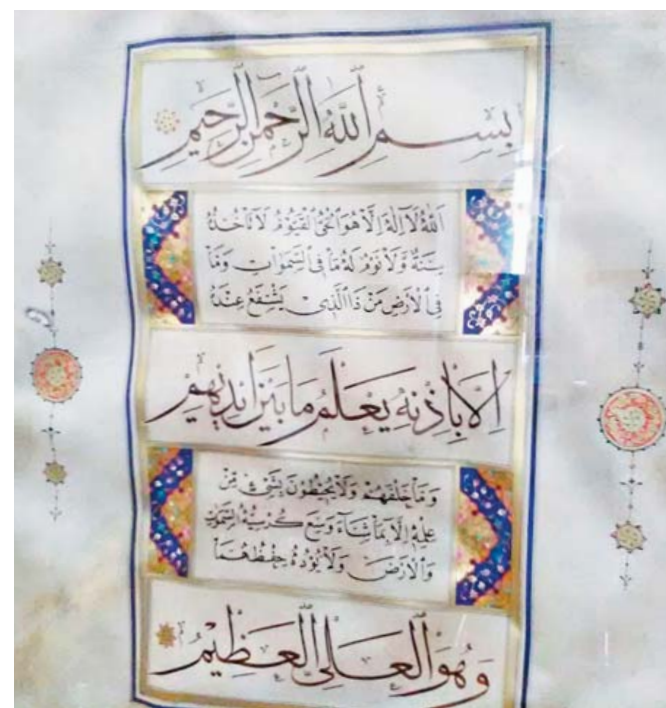 بِسْمِ اللَّهِ الرَّحْمٰنِ الرَّحِيمِ
اَللّٰهُ لَا اِلٰهَ اِلَّا هُوَ الْحَيُّ الْقَيُّوْمُ لَا تَأْخُذُهُ
سِنَةٌ وَّلَا نَوْمٌ لَهُ مَا فِي السَّمٰوَاتِ وَمَا
فِي الْاَرْضِ مَنْ ذَا الَّذِيْ يَشْفَعُ عِنْدَهُ
اِلَّا بِاِذْنِهِ يَعْلَمُ مَا بَيْنَ اَيْدِيْهِمْ
وَمَا خَلْفَهُمْ وَلَا يُحِيْطُوْنَ بِشَيْءٍ مِّنْ
عِلْمِهِ اِلَّا بِمَا شَاءَ وَسِعَ كُرْسِيُّهُ السَّمٰوَاتِ
وَالْاَرْضَ وَلَا يَؤُدُهُ حِفْظُهُمَا
وَهُوَ الْعَلِيُّ الْعَظِيْمُ